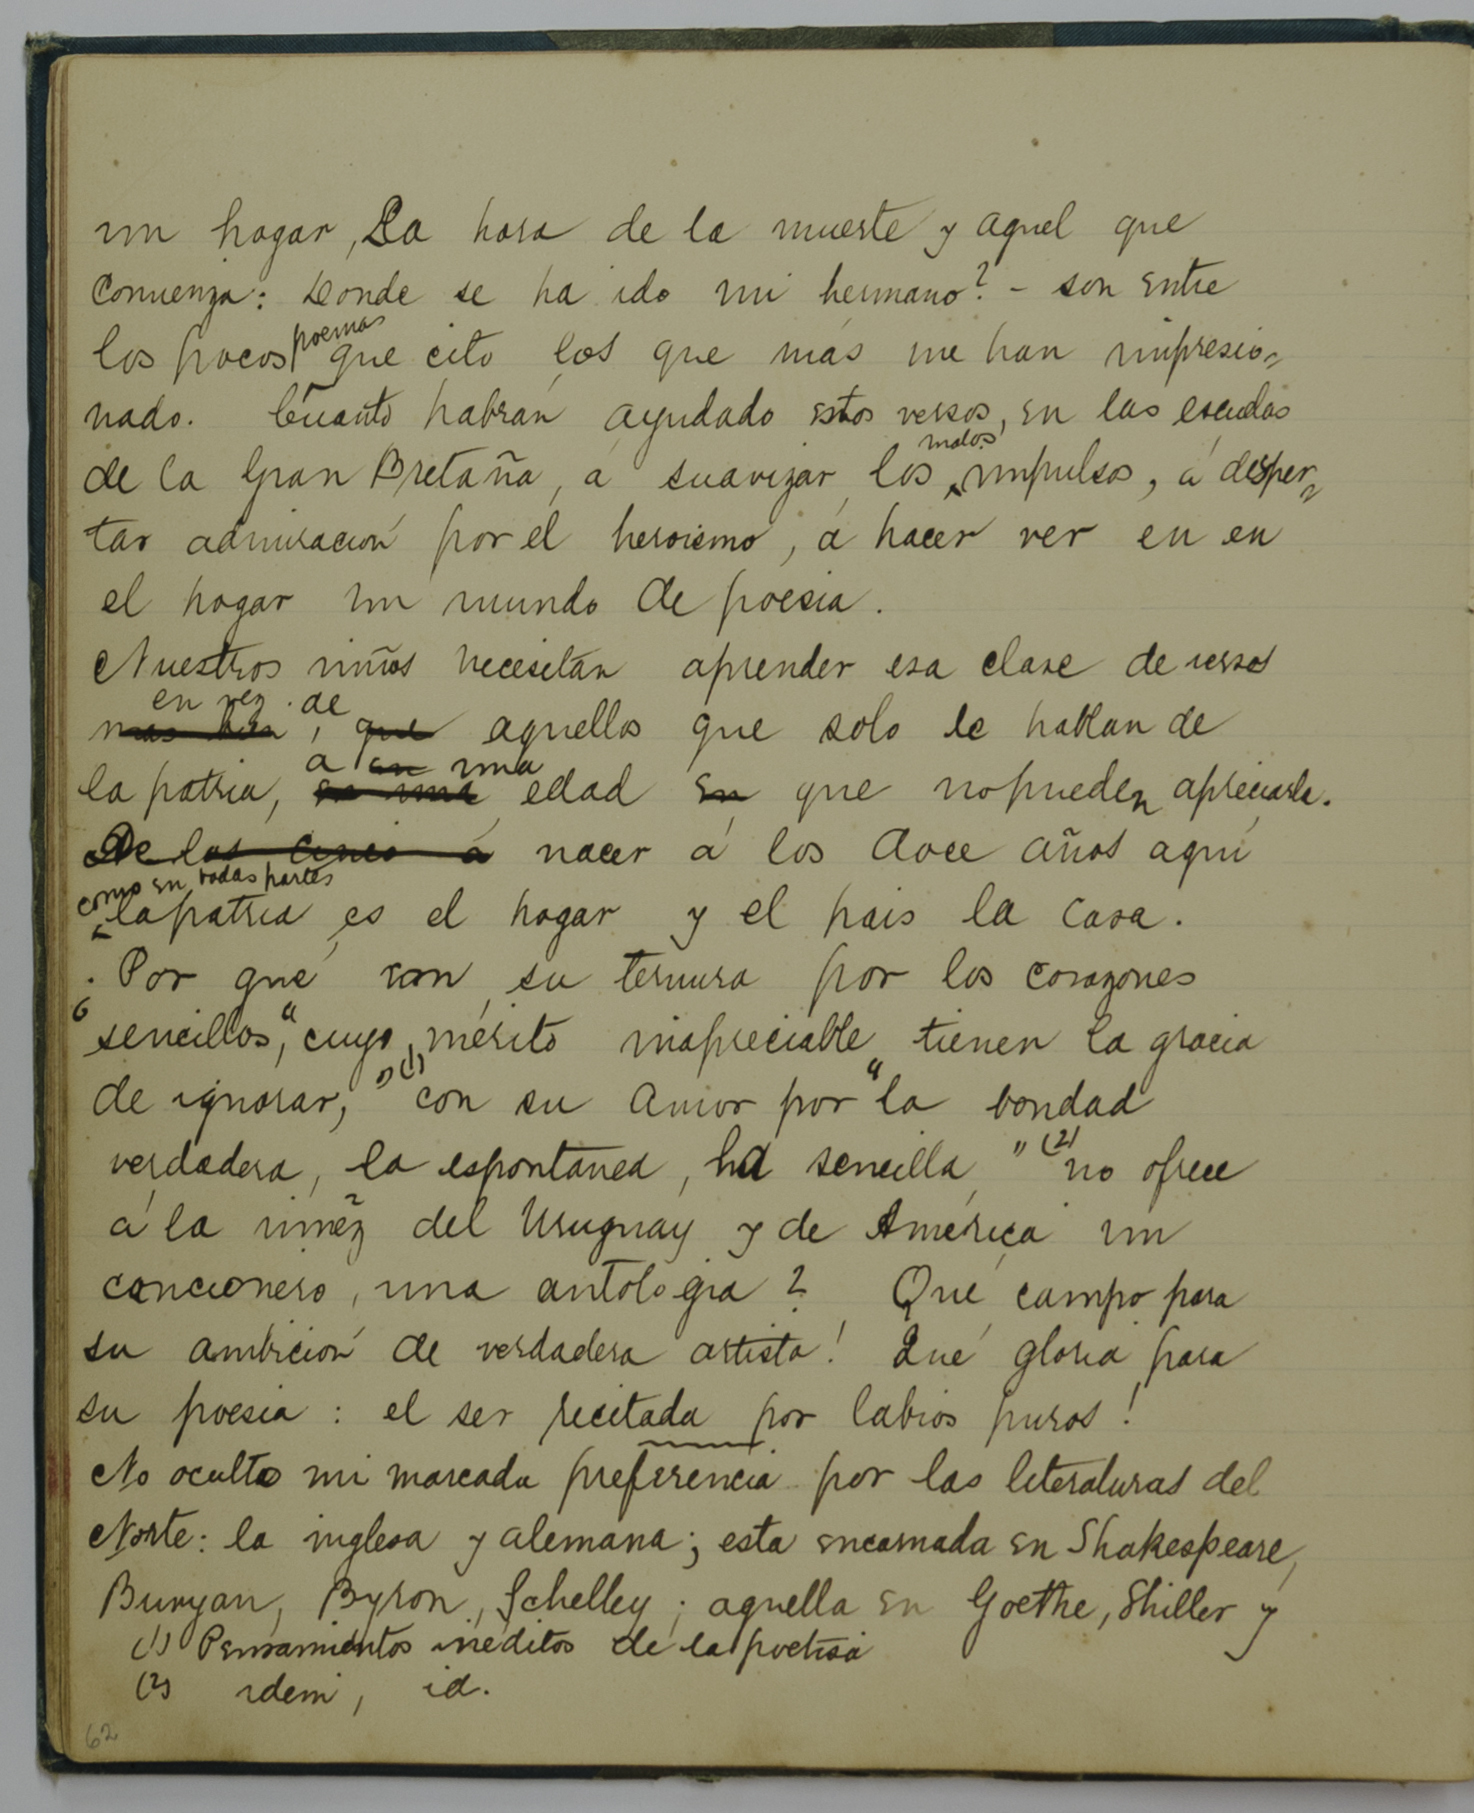 un hogar, La hora de la muerte y aquel que
comienza: Donde se ha ido mi hermano? - son entre
poemas
los pocos que cito los que más me han impresio=
nado. Cuanto habrán ayudado estos versos, en las escuelas
malos
de la Gran Bretaña, á suavizar los impulsos, á desper=
tar admiración por el heroismo, á hacer ver en en
el hogar un mundo de poesia.
Nuestros niños necesitan aprender esa clase de versos
en vez de
mas bien, que aquellos que solo le hablan de
a en una
la patria, en una edad en que no pueden apreciarla.
De los cinco á nacer á los doce años aquí
como en todas partes
la patria es el hogar y el pais la casa.
. Por qué con su ternura por los corazones
"sencillos," cuyo mérito inapreciable tienen la gracia
de ignorar," (1) con su amor por "la bondad
verdadera, la espontanea, la sencilla" (2) no ofrece
á la niñez del Uruguay y de América un
cancionero, una antologia? Qué campo para
su ambición de verdadera artista! Qué gloria para
su poesia: el ser recitada por labios puros!
No oculto mi marcada preferencia por las literaturas del
Norte: la inglesa y alemana; esta encarnada en Shakespeare,
Bunyan, Byron, Schelley; aquella en Goethe, Shiller y
(1) Pensamientos inéditos de la poetisa
(2) idem, id.
62